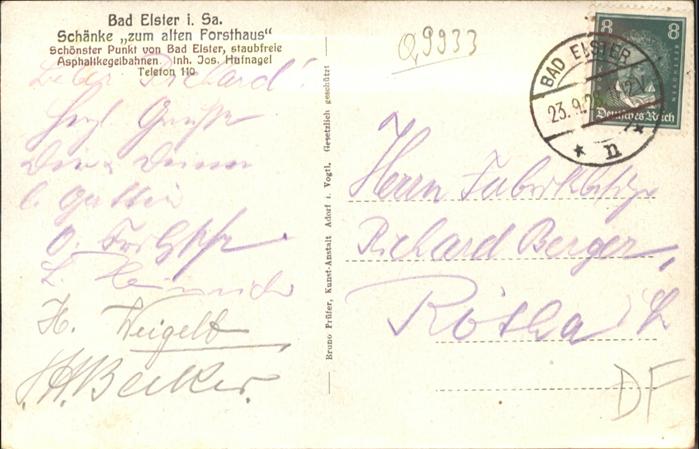 Bad Elster i. Sa.
Schänke „zum alten Forsthaus"
Schönster Punkt von Bad Elster, staubfreie
Asphaltkegelbahnen. Inh. Jos. Hufnagel
Telefon 110
Lieber Richard!
Herzl. Grüsse
Dir u. Deiner
l. Gattin
H. Weigelt
H. Becker.
Bruno Prüfer, Kunst-Anstalt Adorf i. Vogtl. Gesetzlich geschützt
Q,9933
8 8
Deutsches Reich
BAD ELSTER
23.9.2
* n *
Herrn Fabrikbesitzer
Richard Berger,
Rötha
DF